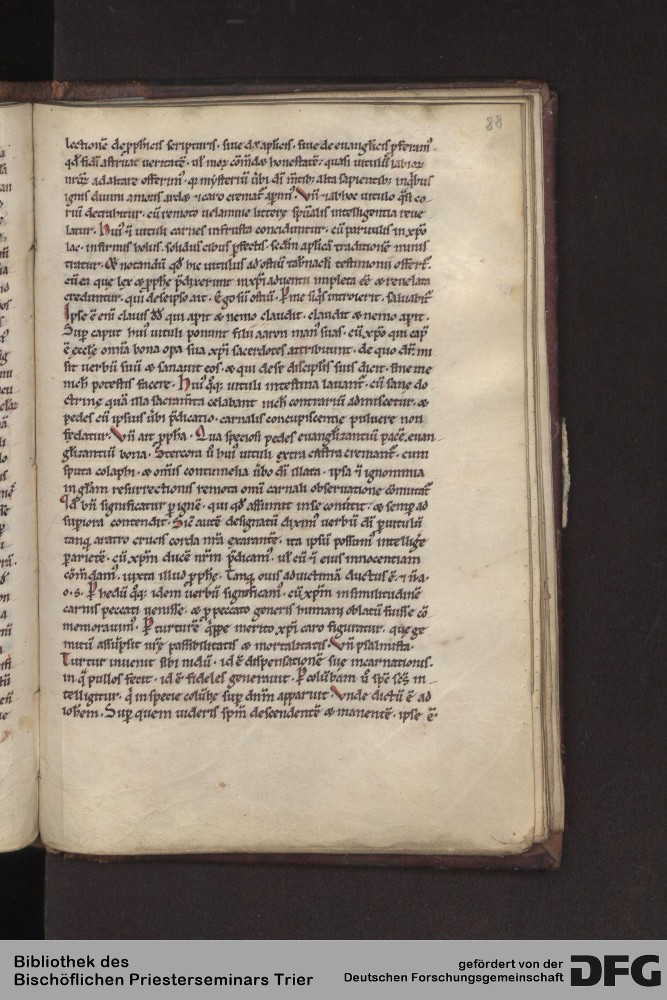 88
lectionē de ꝓph̄icis scripturis · siue de aplīcis · siue de euanglīcis ꝓferim᷒
qd̄ fidei astruat ueritatē · ul̓ moꝝ cōmdet honestatē · quasi uitulū labioꝝ
nr̄oꝝ ad altare offerim᷒
ignis diuini amoris ardet
riū detrahitur · cū remoto uelamine littere sp̄ualis intelligentia reue
latur · carnes in frusta conciduntur · cū paruulis in xp̄o
lac · infirmis holus · solidus cibus ꝑfectis · scd̄m aplīcā traditionē minis
tratur · notandū qd̄ hic uitulus ad ostiū tab̄nacli testimonii offert̄ ·
cū ea que lex ꝓphe p̄dixerunt in xp̄i aduentu impleta eē reuelata
creduntur · qui de seipso ait · Ego sū ostiū · P me siq̄s introierit · saluabit̄
Ipse ē eni clauis dd̄ qui apit nemo claudit · claudit nemo apit ·
Sup caput hui᷒ uituli ponunt filii aaron man᷒ suas · cū xp̄o qui cap̄
ē eccl̄e omia bona opa sua xp̄i sacerdotes attribuunt · de quo dr̄ · mi
sit uerbū suū sanauit eos · qui de se discipl̄is suis dicit · sine me
nichil potestis facere · Hui᷒ qq; uituli intestina lauant̄ · cū sane do
ctrine quā illa sacram̄ta celabant nichil contrariū admiscetur ·
pedes cū ipsius ūbi p̄dicatio · carnalis concupiscentie puluere non
fedatur · Vn̄ ait ꝓpha · Quā speciosi pedes euangl̄izantiū pacē · euan
gl̄izantiū bona · Stercora ū hui᷒ uituli extra castra cremant̄ · cum
sputa colaphi omīs contumelia ūbo dn̄i illata · ipsa ignominia
in glām resurrectionis remota omi carnali obseruatione cōmutat̄
significatur p ignē · qui qd̄ assumit in se conūtit · semp ad
superiora contendit · Sic autē designatū dixim᷒ uerbū dn̄i p uitulū
tanq̄ aratro crucis corda nr̄a exarantē · ita ipsū possum᷒ intellige
p arietē · cū xp̄m ducē nr̄m p̄dicam᷒ · ul̓ cū eius innocentiam
cōmdam᷒ · iuxta illud ꝓphe · Tanq̄ ouis ad uictimā duct᷒ ē · n̄ a ·
o · s · P hedū qq; idem uerbū significam᷒ · cū xp̄m in similitudinē
carnis peccati uenisse · p peccato generis humani oblatū fuisse cō
memorauim᷒ · P turturē q̄ppe merito xp̄i caro figuratur · que ge
mitū assūpsit nr̄e passibilitatis mortalitatis · Vn̄ psalmista ·
Turtur inuenit sibi nidū · id ē dispensationē sue incarnationis ·
in q̄ pullos fecit · id ē fideles genemuit · P colūbam ū sp̄c sc̄s in
telligitur · q̄ in specie colūbe sup dn̄m apparuit · Vnde dictū ē ad
ioh̄em · Sup quem uideris sp̄m descendentē manentē · ipse ē
Bibliothek des
Bischöflichen Priesterseminars Trier
gefördert von der
Deutschen Forschungsgemeinschaft
DFG